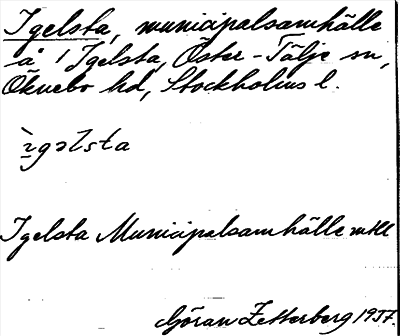 Igelsta, municipalsamhälle
å 1 Igelsta, Öster-Tälje sn,
Öknebo hd, Stockholms l.
ìgəlsta
Igelsta Municipalsamhälle mtll
Göran Zetterberg 1937.